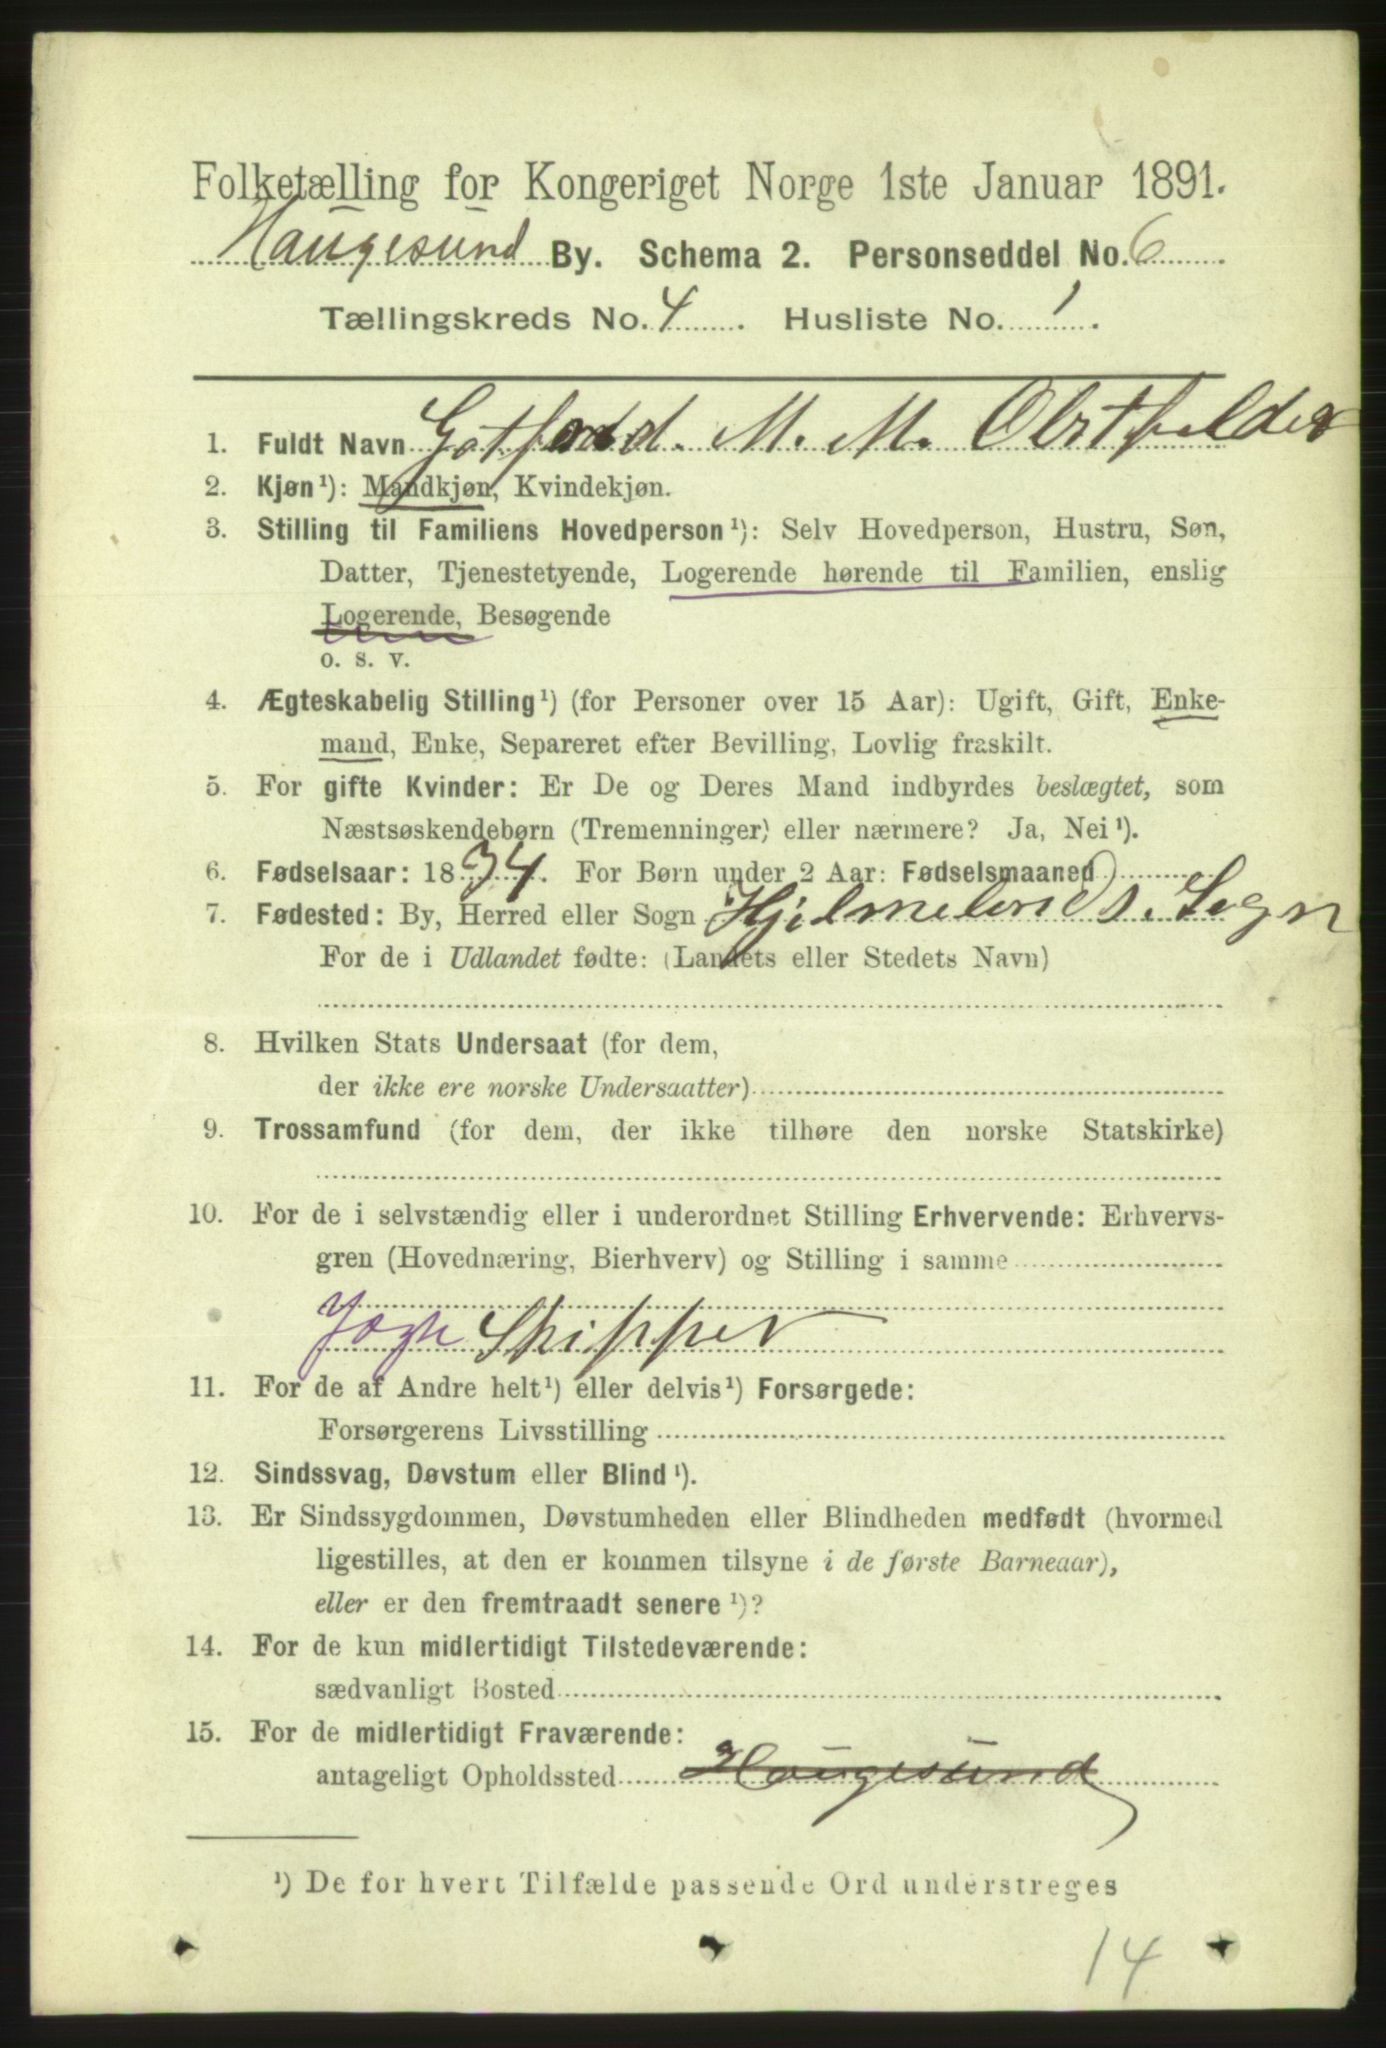 Folketælling for Kongeriget Norge 1ste Januar 1891.
Haugesund By. Schema 2. Personseddel No. 6
Tællingskreds No. 4. Husliste No. 1.
1. Fuldt Navn M. M. Obstfelder
2. Kjøn¹): Mandkjøn, Kvindekjøn.
3. Stilling til Familiens Hovedperson¹): Selv Hovedperson, Hustru, Søn,
Datter, Tjenestetyende, Logerende hørende til Familien, enslig
Logerende, Besøgende
o. s. v.
4. Ægteskabelig Stilling¹) (for Personer over 15 Aar): Ugift, Gift, Enke-
mand, Enke, Separeret efter Bevilling, Lovlig fraskilt.
5. For gifte Kvinder: Er De og Deres Mand indbyrdes beslægtet, som
Næstsøskendebørn (Tremenninger) eller nærmere? Ja, Nei¹).
6. Fødselsaar: 1834. For Børn under 2 Aar: Fødselsmaaned
7. Fødested: By, Herred eller Sogn Hjelmelands. Sogn
For de i Udlandet fødte: (Landets eller Stedets Navn)
8. Hvilken Stats Undersaat (for dem,
der ikke ere norske Undersaatter)
9. Trossamfund (for dem, der ikke tilhøre den norske Statskirke)
10. For de i selvstændig eller i underordnet Stilling Erhvervende: Erhvervs-
gren (Hovednæring, Bierhverv) og Stilling i samme
Jagt Skipper
11. For de af Andre helt¹) eller delvis¹) Forsørgede:
Forsørgerens Livsstilling
12. Sindssvag, Døvstum eller Blind¹).
13. Er Sindssygdommen, Døvstumheden eller Blindheden medfødt (hvormed
ligestilles, at den er kommen tilsyne i de første Barneaar),
eller er den fremtraadt senere¹)?
14. For de kun midlertidigt Tilstedeværende:
sædvanligt Bosted
15. For de midlertidigt Fraværende:
antageligt Opholdssted Haugesund
¹) De for hvert Tilfælde passende Ord understreges
14